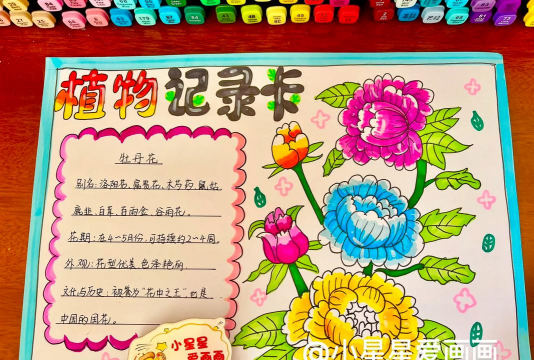 植物记录卡
牡丹花
别名:洛阳花、富贵花、木芍药、鼠姑、
鹿韭、白茸、百雨金、谷雨花。
花期:在4~5月份,可持续约2~4周。
外观:花型优美 色泽艳丽
文化与历史:被誉为"花中之王"也是
中国的国花。
小星星
爱画画
@小星星爱画画